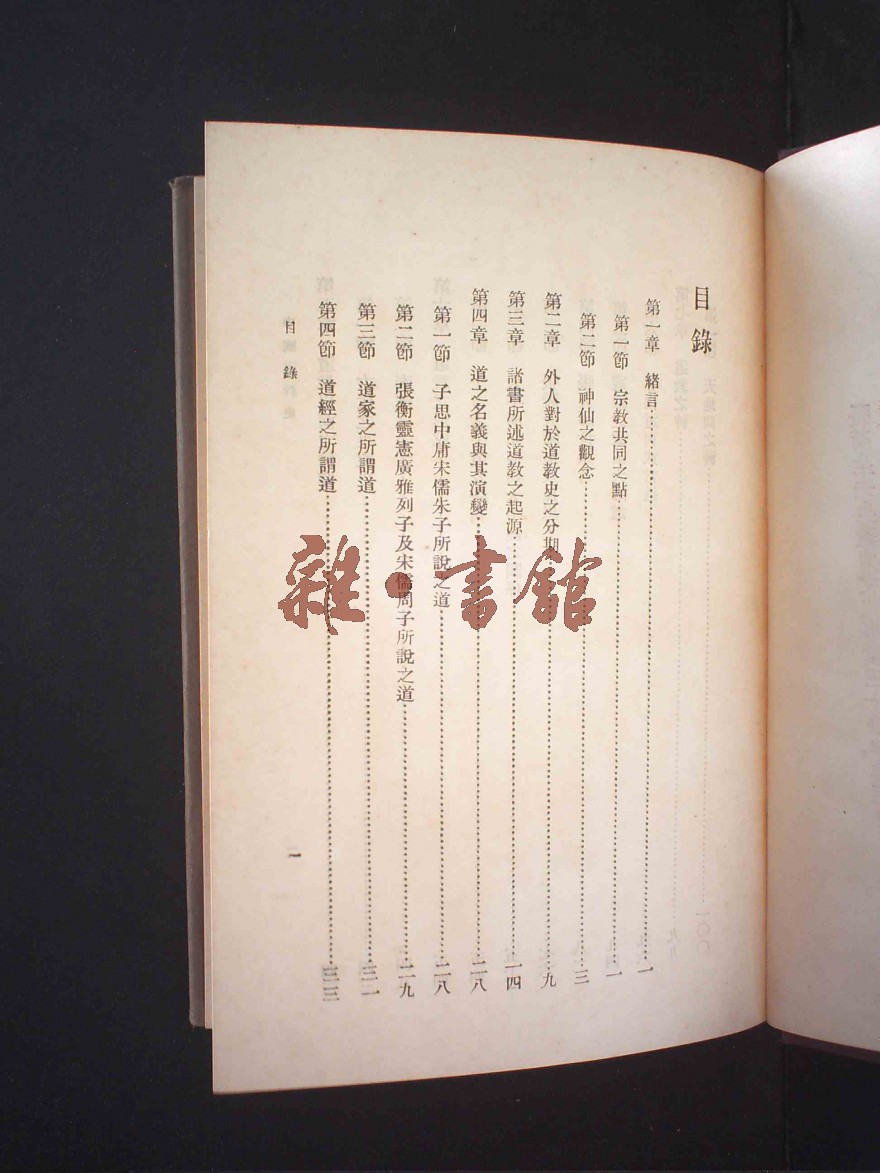 目錄
第一章 緒言……一
第一節 宗教共同之點……一
第二節 神仙之觀念……三
第二章 外人對於道教史之分期……九
第三章 諸書所述道教之起源……一四
第四章 道之名義與其演變……二八
第一節 子思中庸宋儒朱子所說之道……二八
第二節 張衡靈憲廣雅列子及宋儒周子所說之道……二九
第三節 道家之所謂道……三一
第四節 道經之所謂道……三三
目錄 一
雜·書館